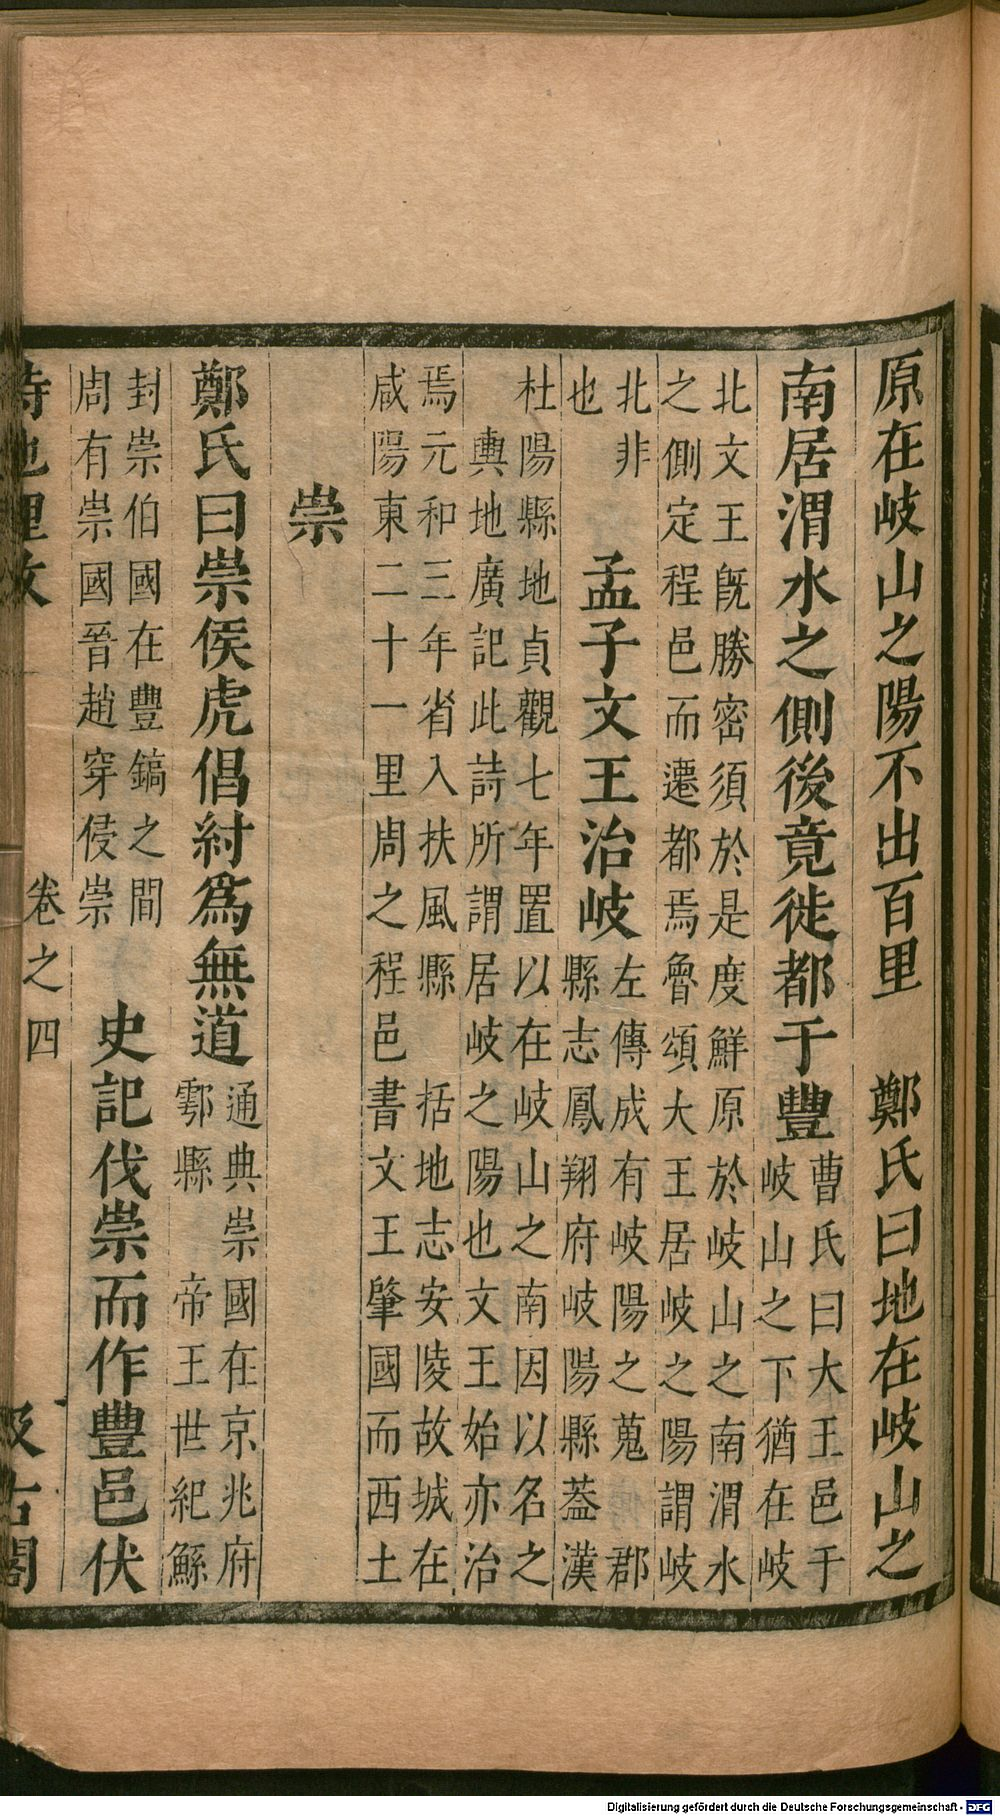 原在岐山之陽不出百里　鄭氏曰地在岐山之
南居渭水之側後竟徙都于豐
曹氏曰大王邑于
岐山之下猶在岐
北文王旣勝密須於是度鮮原於岐山之南渭水
之側定程邑而遷都焉魯頌大王居岐之陽謂岐
北非
也
孟子文王治岐
左傳成有岐陽之蒐　郡
縣志鳳翔府岐陽縣葢漢
杜陽縣地貞觀七年置以在岐山之南因以名之
輿地廣記此詩所謂居岐之陽也文王始亦治
焉元和三年省入扶風縣　括地志安陵故城在
咸陽東二十一里周之程邑書文王肇國而西土
崇
鄭氏曰崇侯虎倡紂爲無道
通典崇國在京兆府
鄠縣　帝王世紀鯀
封崇伯國在豐鎬之間
周有崇國晉趙穿侵崇
史記伐崇而作豐邑伏
詩地理攷
卷之四
汲古閣
Digitalisierung gefördert durch die Deutsche Forschungsgemeinschaft - DFG